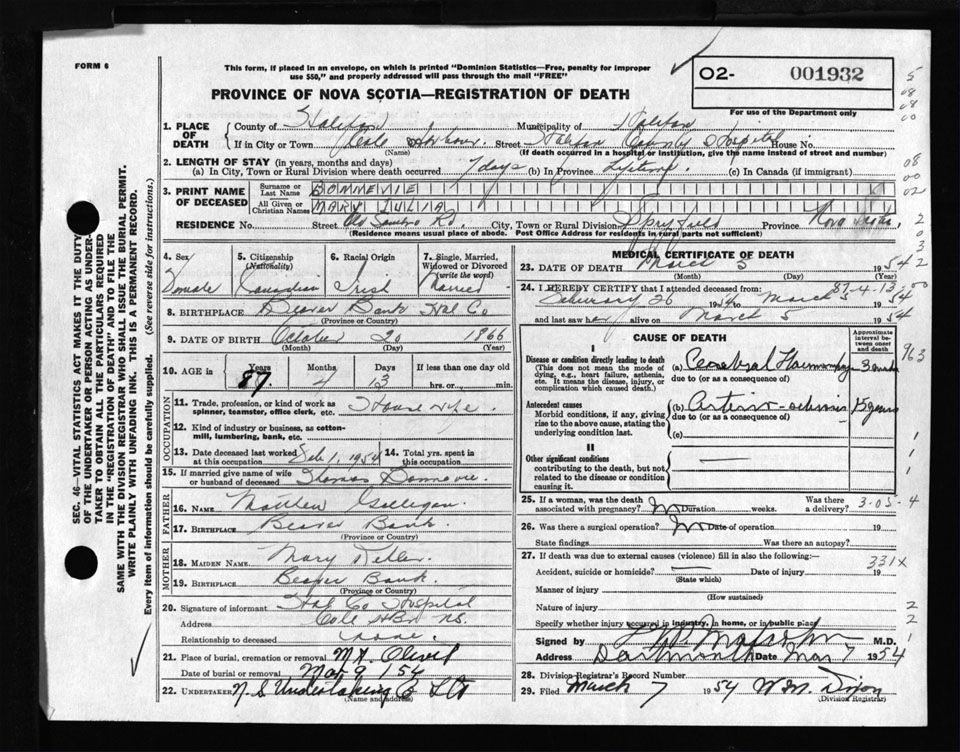 FORM 6
This form, if placed in an envelope, on which is printed "Dominion Statistics—Free, penalty for improper
use $50," and properly addressed will pass through the mail "FREE"
PROVINCE OF NOVA SCOTIA—REGISTRATION OF DEATH
02- 001932
For use of the Department only
SEC. 46—VITAL STATISTICS ACT MAKES IT THE DUTY
OF THE UNDERTAKER OR PERSON ACTING AS UNDER-
TAKER TO OBTAIN ALL THE PARTICULARS REQUIRED
IN THE "REGISTRATION OF DEATH" AND TO FILE THE
SAME WITH THE DIVISION REGISTRAR WHO SHALL ISSUE THE BURIAL PERMIT.
WRITE PLAINLY WITH UNFADING INK. THIS IS A PERMANENT RECORD.
Every item of information should be carefully supplied. (See reverse side for instructions.)
1. PLACE OF DEATH
County of Halifax Municipality of Halifax
If in City or Town Cole Harbour Street Halifax County Hospital House No.
(Name) (If death occurred in a hospital or institution, give the name instead of street and number)
2. LENGTH OF STAY (in years, months and days)
(a) In City, Town or Rural Division where death occurred 7 days (b) in Province Lifetime. (c) In Canada (if immigrant)
3. PRINT NAME OF DECEASED
Surname or Last Name BONNEVIE
All Given or Christian Names MARY JULIA
RESIDENCE No. Street Old Sambro Rd. City, Town or Rural Division Spryfield Province Nova Scotia
(Residence means usual place of abode. Post Office Address for residents in rural parts not sufficient)
4. Sex Female
5. Citizenship (Nationality) Canadian
6. Racial Origin Irish
7. Single, Married, Widowed or Divorced (write the word) Married
8. BIRTHPLACE Beaver Bank Hal Co
(Province or Country)
9. DATE OF BIRTH October 20 1866
(Month) (Day) (Year)
10. AGE is Years 87 Months 4 Days 13 If less than one day old hrs. or min.
OCCUPATION
11. Trade, profession, or kind of work as
spinner, teamster, office clerk, etc. Housewife
12. Kind of industry or business, as cotton-
mill, lumbering, bank, etc.
13. Date deceased last worked at this occupation Feb 1, 1954
14. Total yrs. spent in this occupation
15. If married give name of wife or husband of deceased Thomas Bonnevie
FATHER
16. NAME Matthew
17. BIRTHPLACE Beaver Bank.
(Province or Country)
MOTHER
18. MAIDEN NAME Mary
19. BIRTHPLACE Beaver Bank.
(Province or Country)
20. Signature of informant Hal Co Hospital
Address Cole Hbr NS.
Relationship to deceased none.
21. Place of burial, cremation or removal Mt. Olivet
Date of burial or removal Mar 9 / 54
22. UNDERTAKER N. S Undertaking Co Ltd
(Name and address)
MEDICAL CERTIFICATE OF DEATH
23. DATE OF DEATH March 5 1954
(Month) (Day)
87-4-13
24. I HEREBY CERTIFY that I attended deceased from:
February 26 1954 to March 5 1954
and last saw her alive on March 5 1954
CAUSE OF DEATH
Approximate interval between onset and death
I
Disease or condition directly leading to death
(This does not mean the mode of
dying, e.g., heart failure, asthenia,
etc. It means the disease, injury, or
complication which caused death.)
(a) Cerebral Haemorrhage 3
due to (or as a consequence of)
Antecedent causes
Morbid conditions, if any, giving
rise to the above cause, stating the
underlying condition last.
(b) Arterio-sclerosis 15 years
due to (or as a consequence of)
(c)
II
Other significant conditions
contributing to the death, but not
related to the disease or condition
causing it.
25. If a woman, was the death associated with pregnancy? No Duration weeks. Was there a delivery? 3-05-4
26. Was there a surgical operation? No Date of operation 19
State findings Was there an autopsy?
27. If death was due to external causes (violence) fill in also the following:—
331X
Accident, suicide or homicide? Date of injury 19
(State which)
Manner of injury
(How sustained)
Nature of injury
Specify whether injury occurred in industry, in home, or in public place
Signed by M.D.
Address Dartmouth Date Mar 7 1954
28. Division Registrar's Record Number
29. Filed March 7 1954 Wm. Dixon
(Division Registrar)